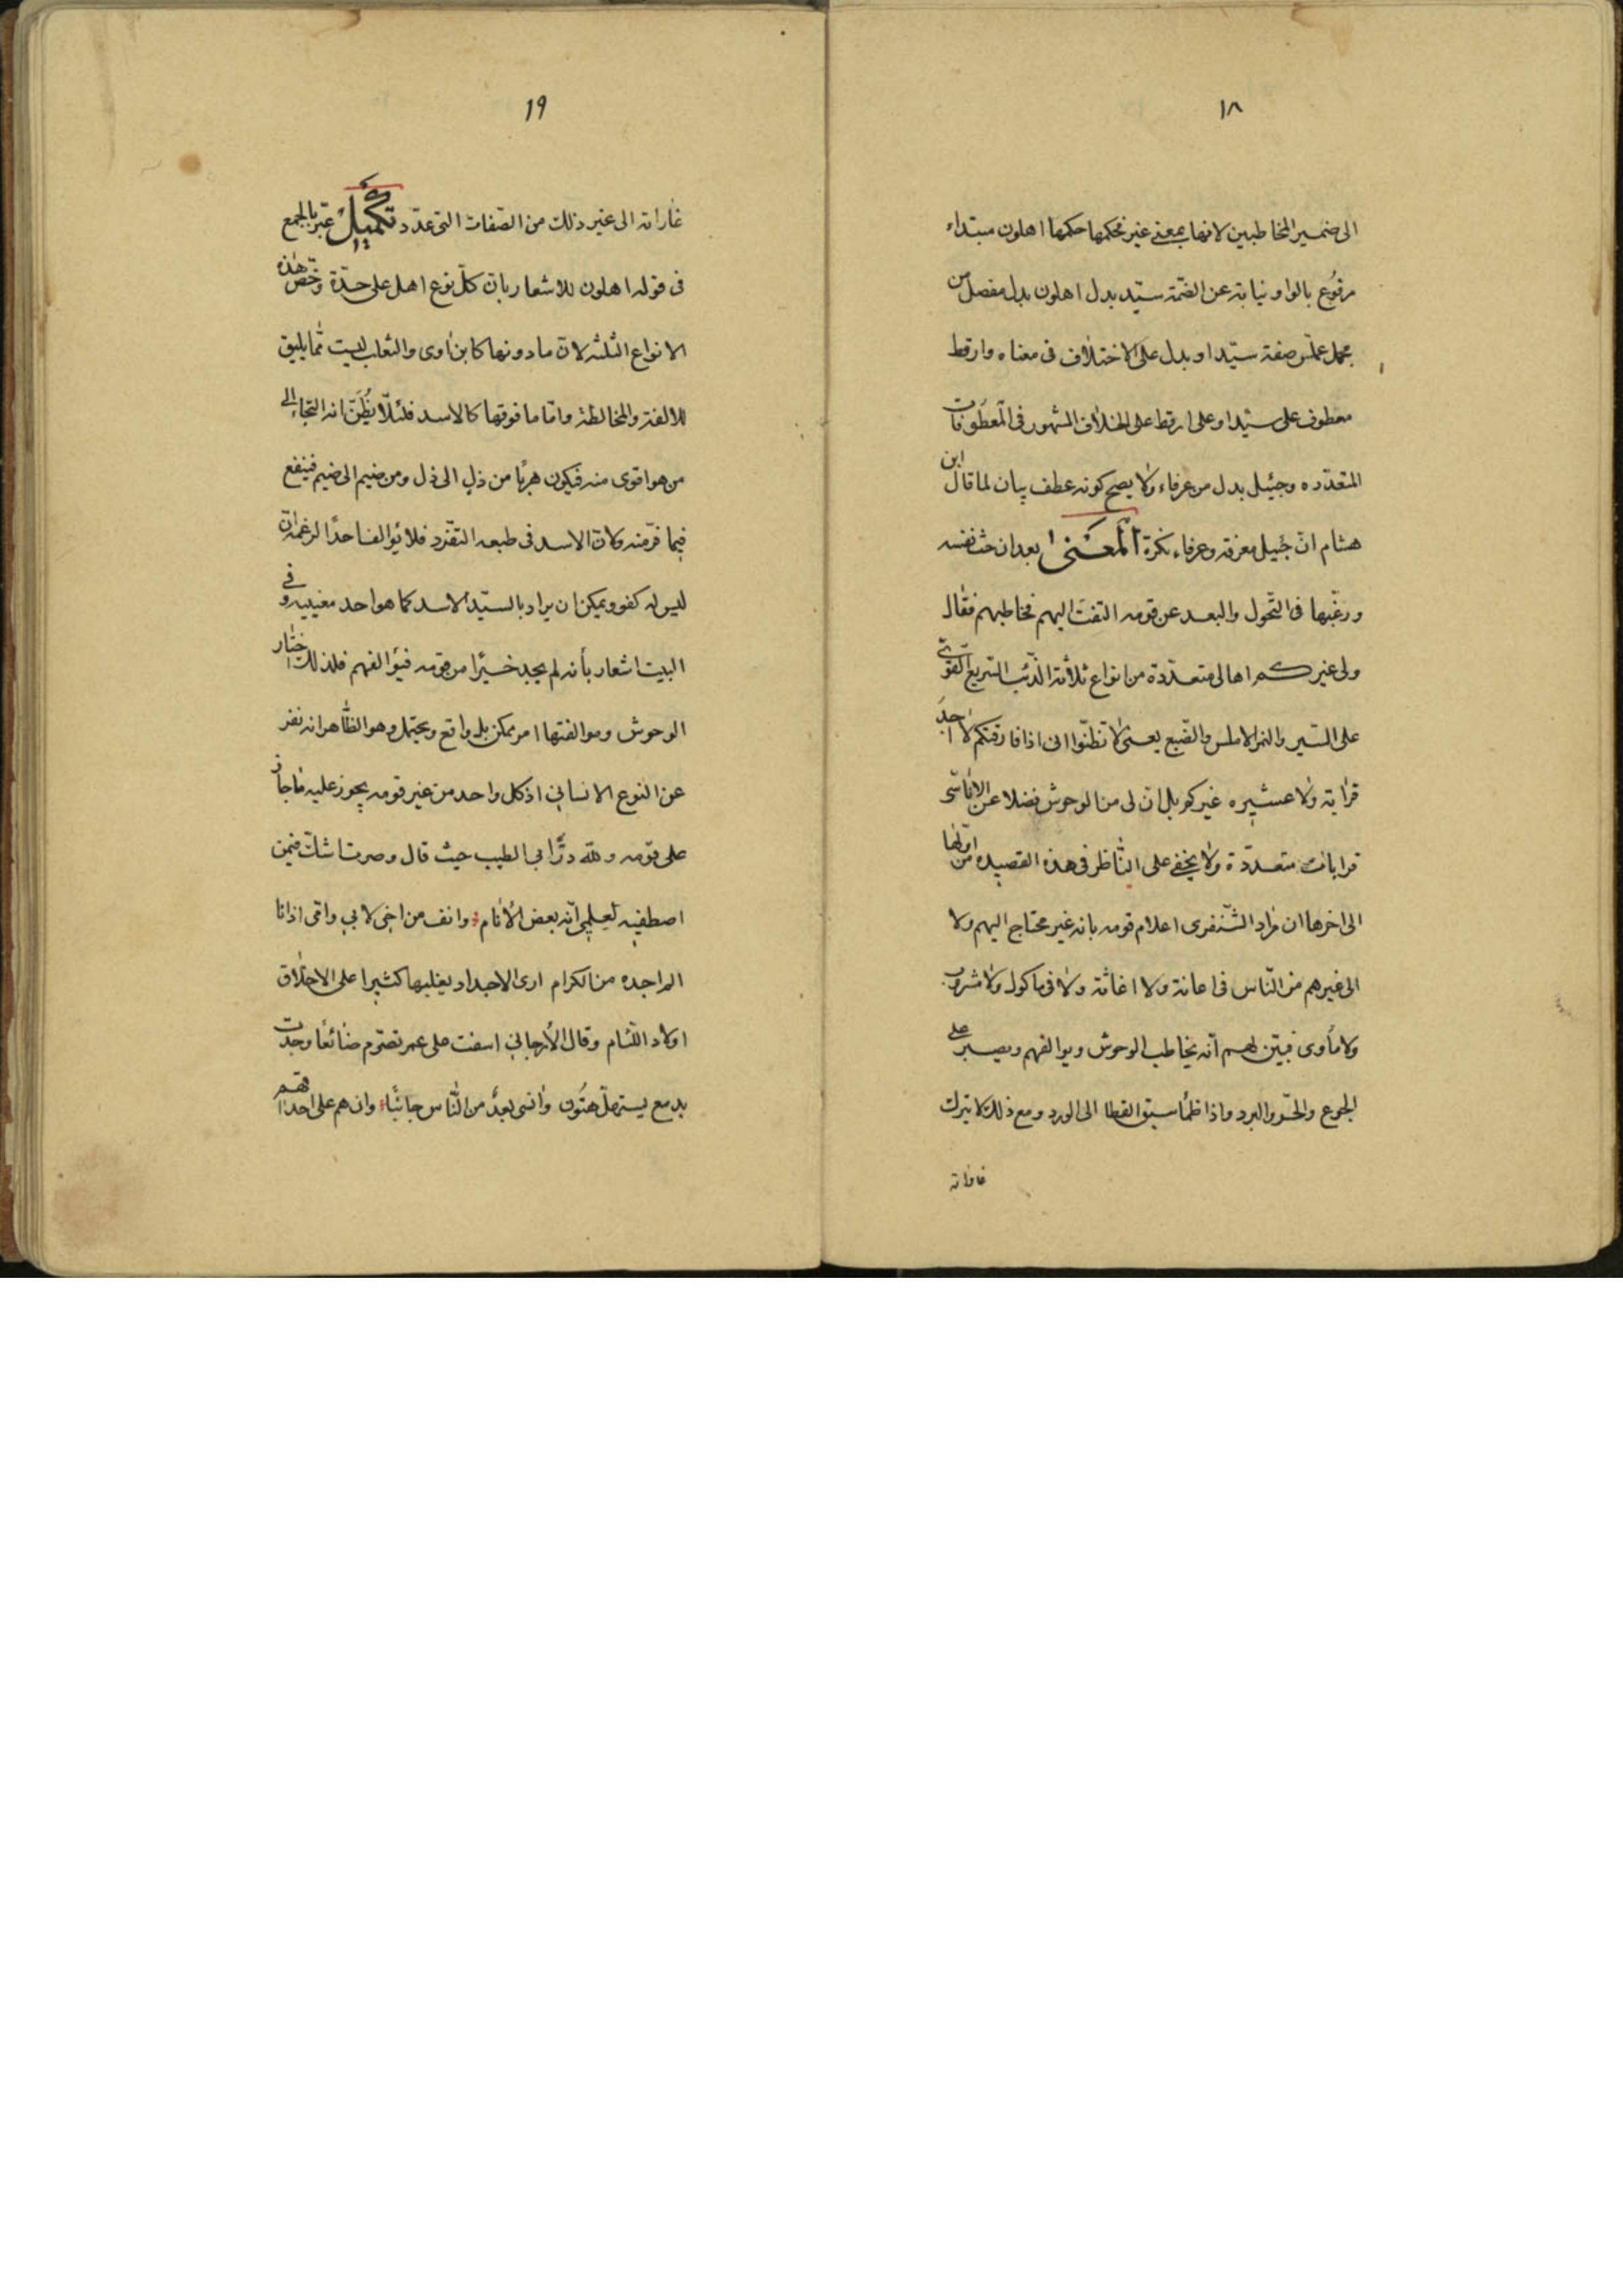 ١٨
الى ضمير المخاطبين لانها بمعنى غير فحكمها حكمها اهلون مبتداء
مرفوع بالواو نيابة عن الضمة سيد بدل اهلون بدل مفصل من
مجمل عملس صفة سيد او بدل على الاختلاف فى معناه وارقط
معطوف على سيد او على ارقط على الخلاف المشهور فى المعطوفات
المتعدده وجيئل بدل من عرفاء ولا يصح كونه عطف بيان لما قال ابن
هشام ان جيئل معرفة وعرفاء نكرة المعنى بعد ان حث نفسه
ورغبها فى التحول والبعد عن قومه التفت اليهم فخاطبهم فقال
ولى غيركم اهالى متعددة من انواع ثلاثة الذئب السريع القوى
على السير والنمر الاملس والضبع يعنى لا تظنوا انى اذا فارقتكم لا اجد
قرابة ولا عشيره غيركم بل ان لى من الوحوش فضلا عن الاناسى
قرابات متعددة ولا يخفى على الناظر فى هذه القصيده من اولها
الى اخرها ان مراد الشنفرى اعلام قومه بانه غير محتاج اليهم ولا
الى غيرهم من الناس فى اعانة ولا اغاثة ولا فى ماكول ولا مشروب
ولا مأوى فبين لهم انه يخاطب الوحوش ويوالفهم ويصبر على
الجوع والحر والبرد واذا ظمأ سبق القطا الى الورد ومع ذلك لا يترك
غاراته
١٩
غاراته الى غير ذلك من الصفات التى عدد تكميل عبر بالجمع
فى قوله اهلون للاشعار بان كل نوع اهل على حدة وخص هذه
الانواع الثلثه لان ما دونها كابن اوى والثعلب ليست مما يليق
للالفة والمخالطة واما ما فوقها كالاسد فلئلا يظن انه التجاء الى
من هو اقوى منه فيكون هربا من ذل الى ذل ومن ضيم الى ضيم فيقع
فيما فر منه ولان الاسد فى طبعه التفرد فلا يوالف احدا لزعمه ان
ليس له كفو ويمكن ان يراد بالسيد الاسد كما هو احد معنييه وفى
البيت اشعار بأنه لم يجد خيرا من قومه فيوالفهم فلذلك اختار
الوحوش وموالفتها امر ممكن بل واقع ويحتمل وهو الظاهر انه نفر
عن النوع الانسانى اذ كل واحد من غير قومه يجوز عليه ما جاز
على قومه ولله در ابى الطيب حيث قال وصرت اشك فيمن
اصطفيه لعلمى انه بعض الانام وانف من اخى لابى وامى اذا ما
لم اجده من الكرام ارى الاجداد يغلبها كثيرا على الاخلاق
اولاد اللئام وقال الأرجانى اسفت على عمر تصرم ضائعا وجدت
بدمع يستهل هتون وانسى بعد من الناس جانبا وان هم على احداقهم